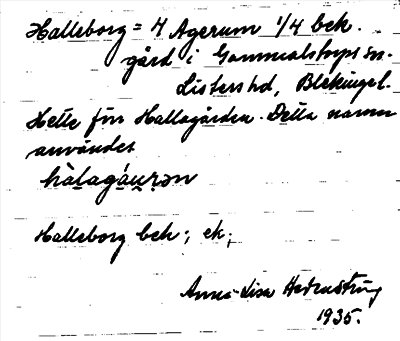 Halleborg = 4 Agerum 1/4 bek.
gård i Gammalstorps sn.
Listers hd, Blekinge l.
Hette förr Hallagården. Detta namn
användes
hàlagáu̯rən
Halleborg bek.; ek.;
Anna-Lisa
1935.